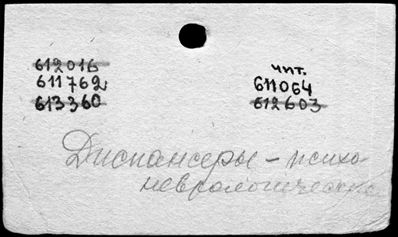 612016
611762
613360
чит.
611064
612603
Диспансеры – психо
неврологические